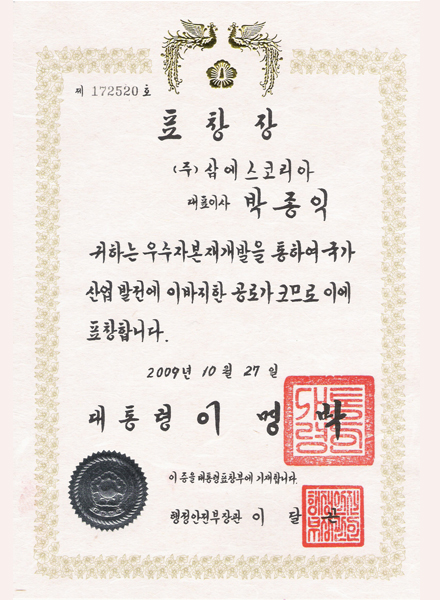 제 172520 호
표 창 장
(주) 삼에스코리아
대표이사 박 종 익
귀하는 우수자본재개발을 통하여 국가
산업 발전에 이바지한 공로가 크므로 이에
표창합니다.
2009년 10 월 27 일
대 통 령 이 명 박
이 증을 대통령표창부에 기재합니다.
행정안전부장관 이 달 곤